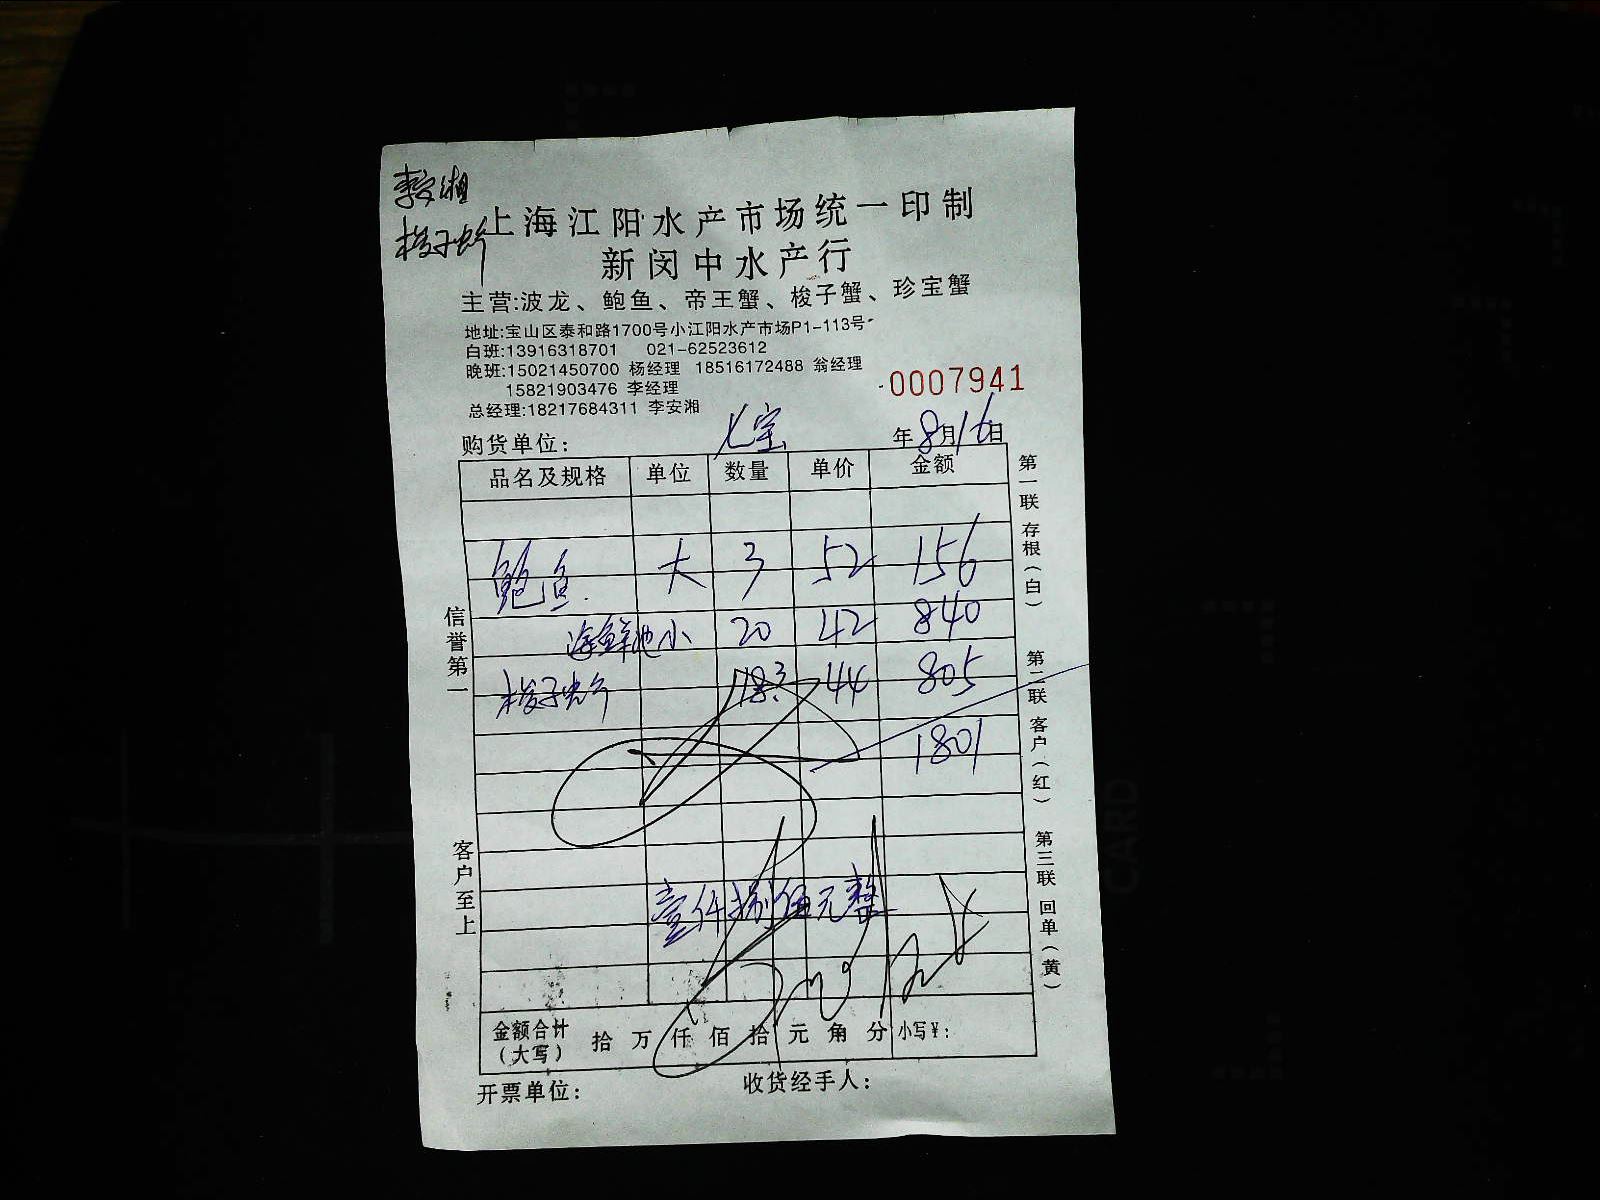 李安湘
梭子蟹
上海江阳水产市场统一印制
新闵中水产行
主营:波龙、鲍鱼、帝王蟹、梭子蟹、珍宝蟹
地址:宝山区泰和路1700号小江阳水产市场P1-113号
白班:13916318701 021-62523612
晚班:15021450700 杨经理 18516172488 翁经理
15821903476 李经理
总经理:18217684311 李安湘
0007941
购货单位: 七宝 年8月16日
品名及规格 单位 数量 单价 金额
鲍鱼 大 3 52 156
海鲜池小 20 42 840
梭子蟹 18.3 44 805
1801
壹仟捌 伍元整
金额合计(大写) 拾 万 仟 佰 拾 元 角 分 小写¥:
开票单位: 收货经手人:
信誉第一
客户至上
第一联 存根(白)
第二联 客户(红)
第三联 回单(黄)